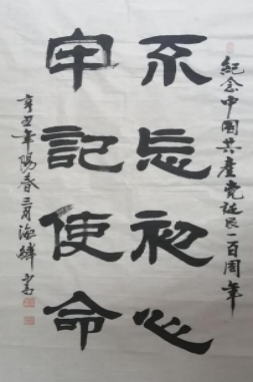 紀念中國共產党誕辰一百周年
不忘初心
牢記使命
辛丑年陽春三月海